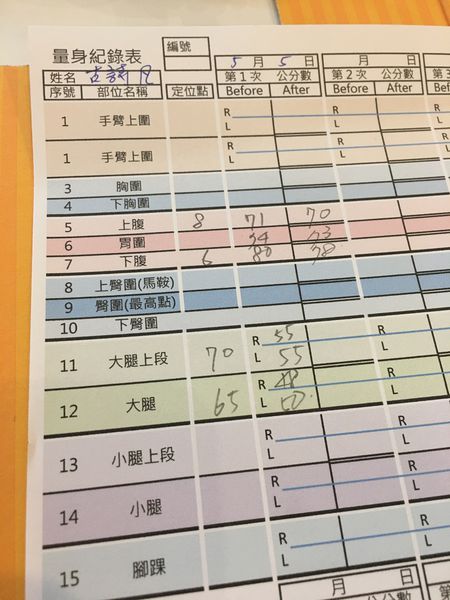 量身紀錄表 編號
5 月 5 日 月 日
姓名 第 1 次 公分數 第 2 次 公分數 第 3
序號 部位名稱 定位點 Before After Before After Bef
1 手臂上圍 R L R L
1 手臂上圍 R L R L
3 胸圍
4 下胸圍
5 上腹 8 71 70
6 胃圍
7 下腹 6 80 78
8 上臀圍(馬鞍)
9 臀圍(最高點)
10 下臀圍
11 大腿上段 70 R 55 L 55 R L
12 大腿 65 R 48 L 50 R L
13 小腿上段 R L R L
14 小腿 R L R L
15 腳踝 R L R L
月 日